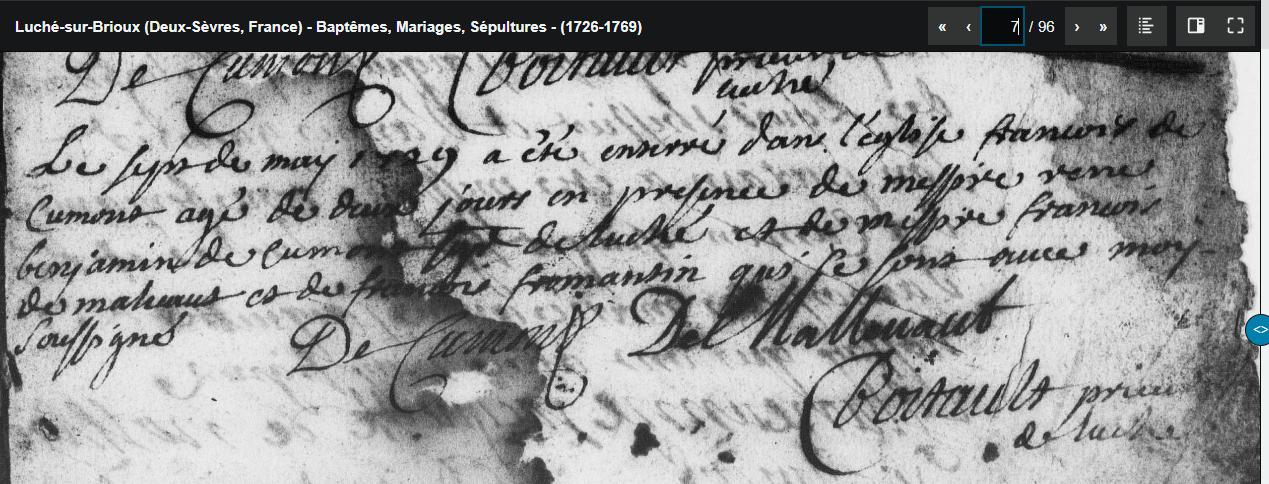 Luché-sur-Brioux (Deux-Sèvres, France) - Baptêmes, Mariages, Sépultures - (1726-1769)
« ‹ 7 / 96 › »
De Cumont Poitault prieur de
luché
Le sept de may 1729 a été enterré dans l'église francois de
Cumont agé de deux jours en presence de messire rene
benjamin de Cumont de luché et de messire francois
de malvaut et de francois fromantin qui se sont avec moy
soussignés De Cumont De Mallevault
Poitault prieur
de luché
<>